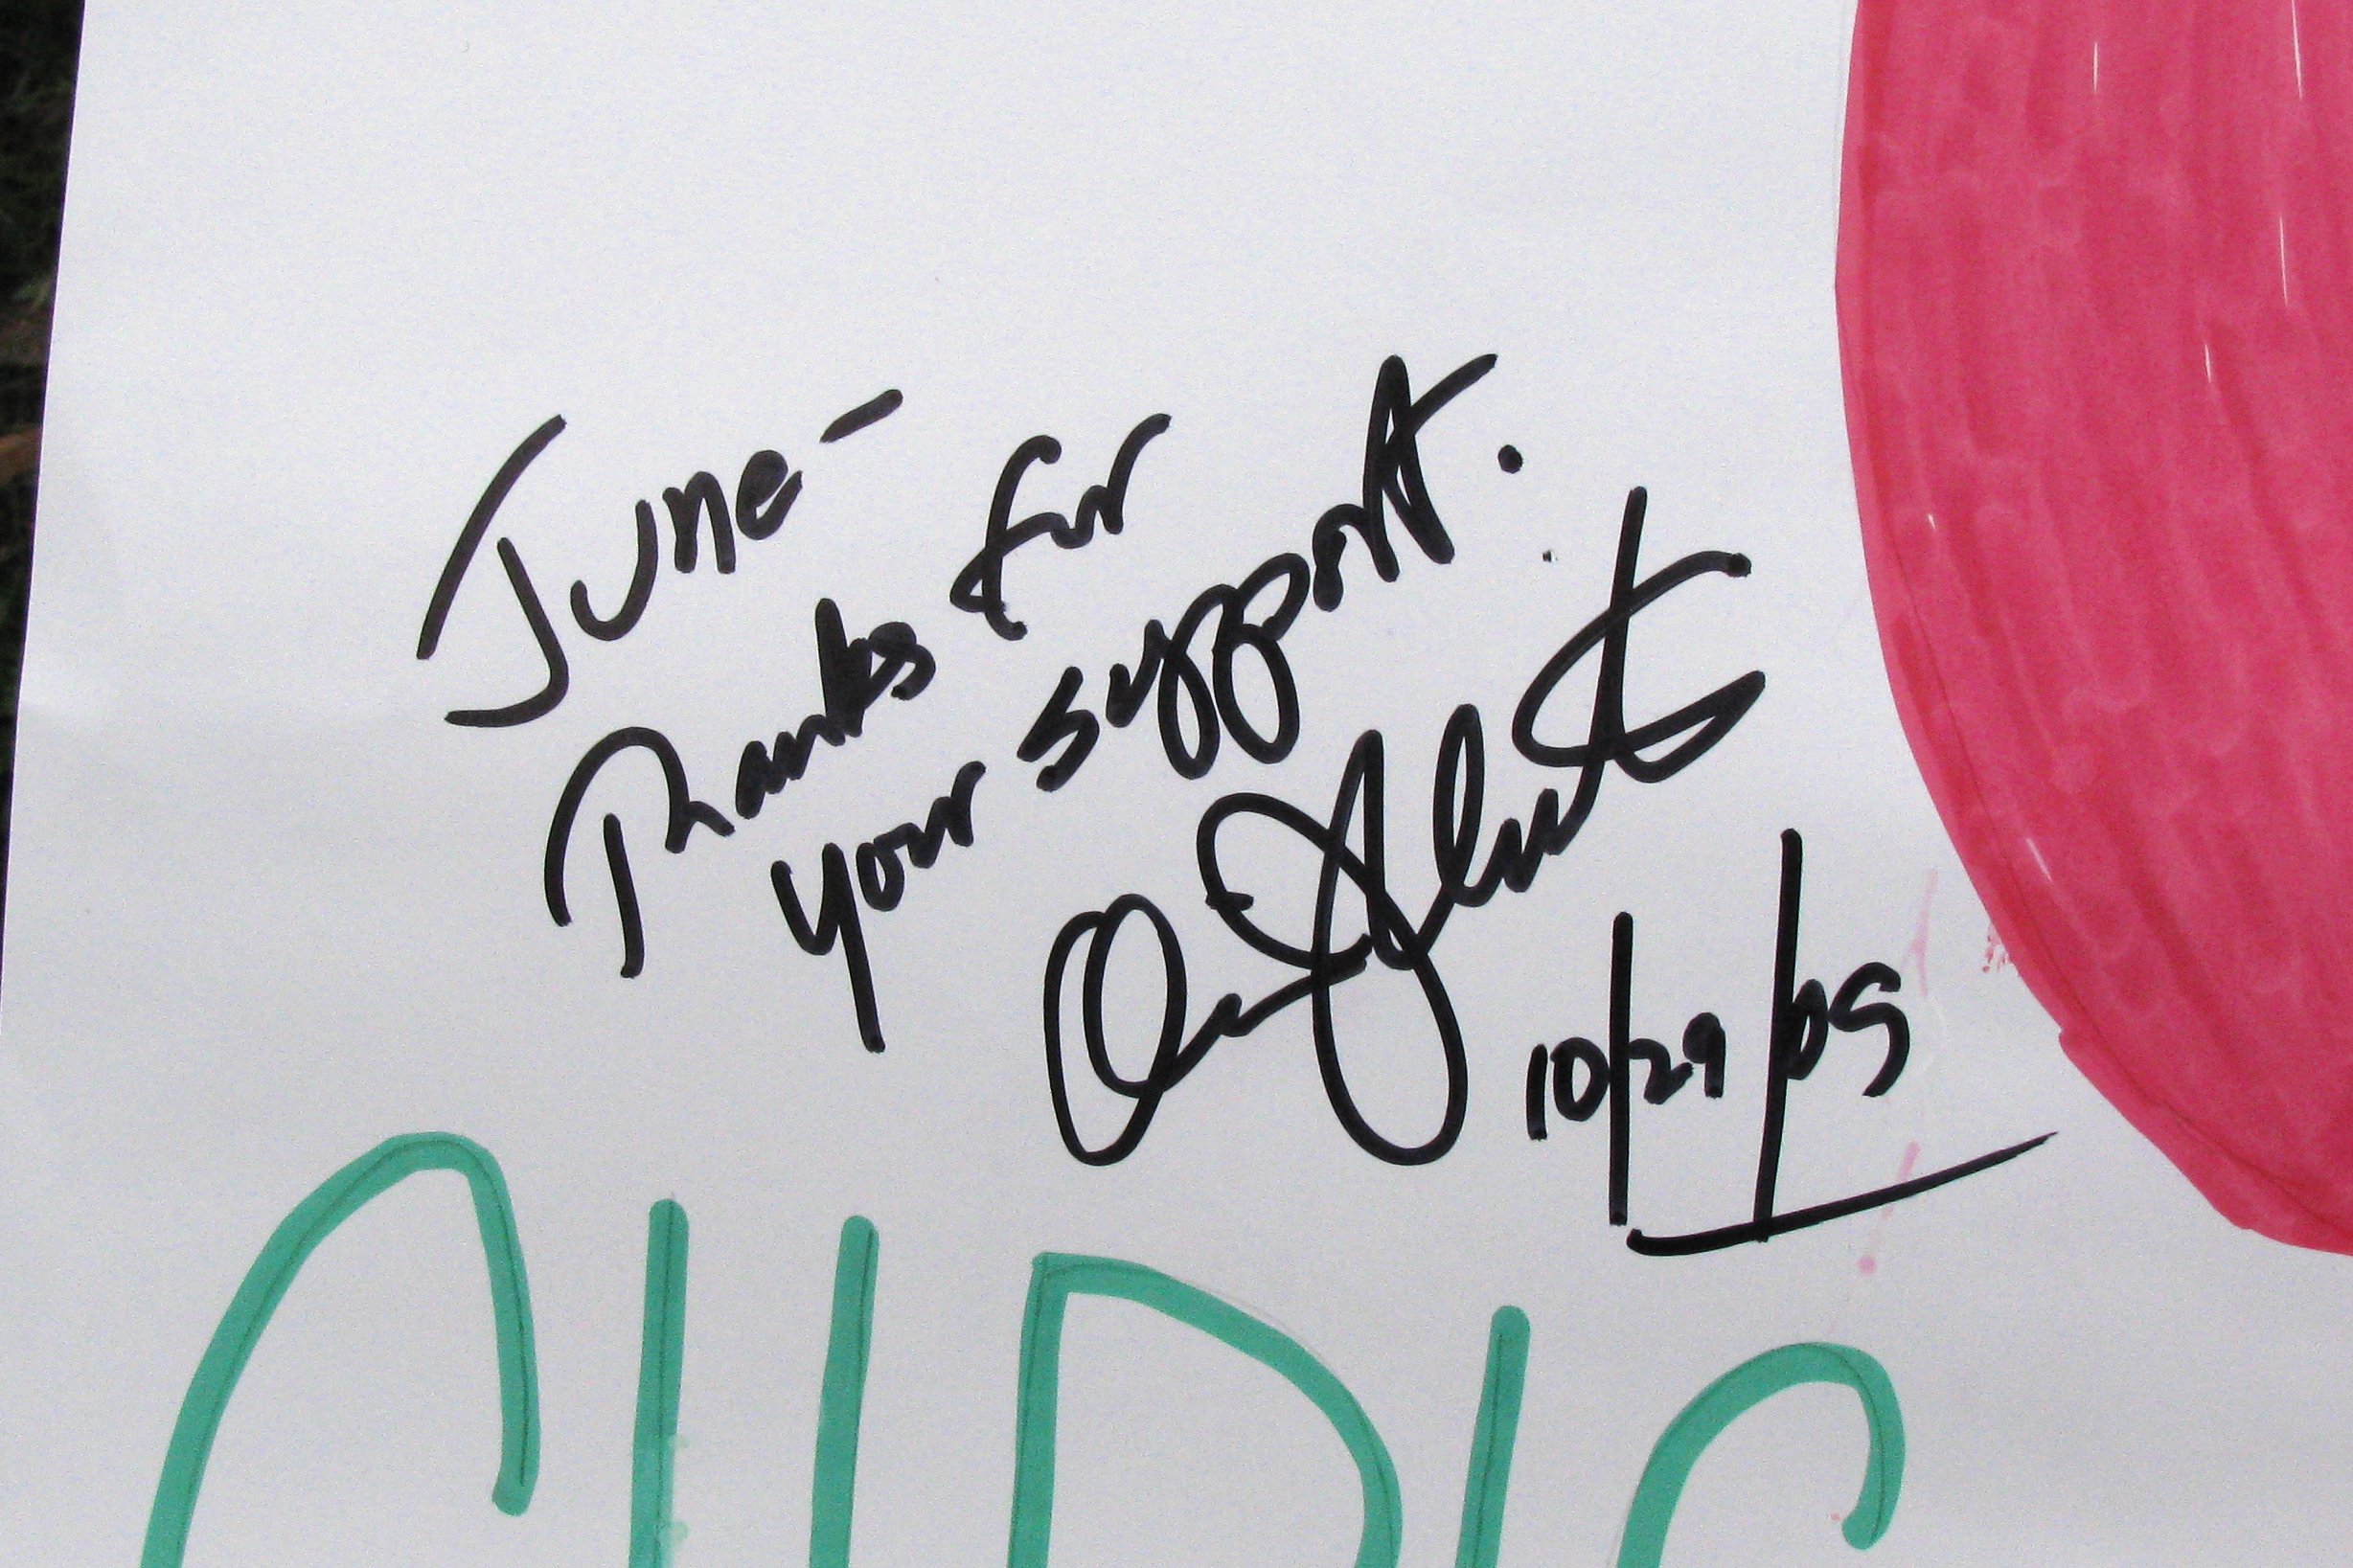 June-
Thanks for
your support.
10/29/05
CHRIS